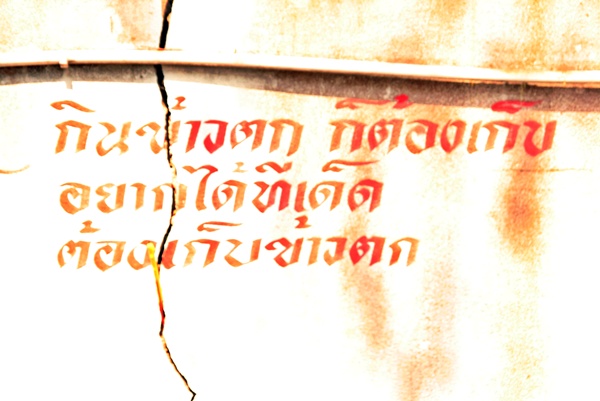 กินข้าวตก ก็ต้องเก็บ
อยากได้ทีเด็ด
ต้องเก็บข้าวตก